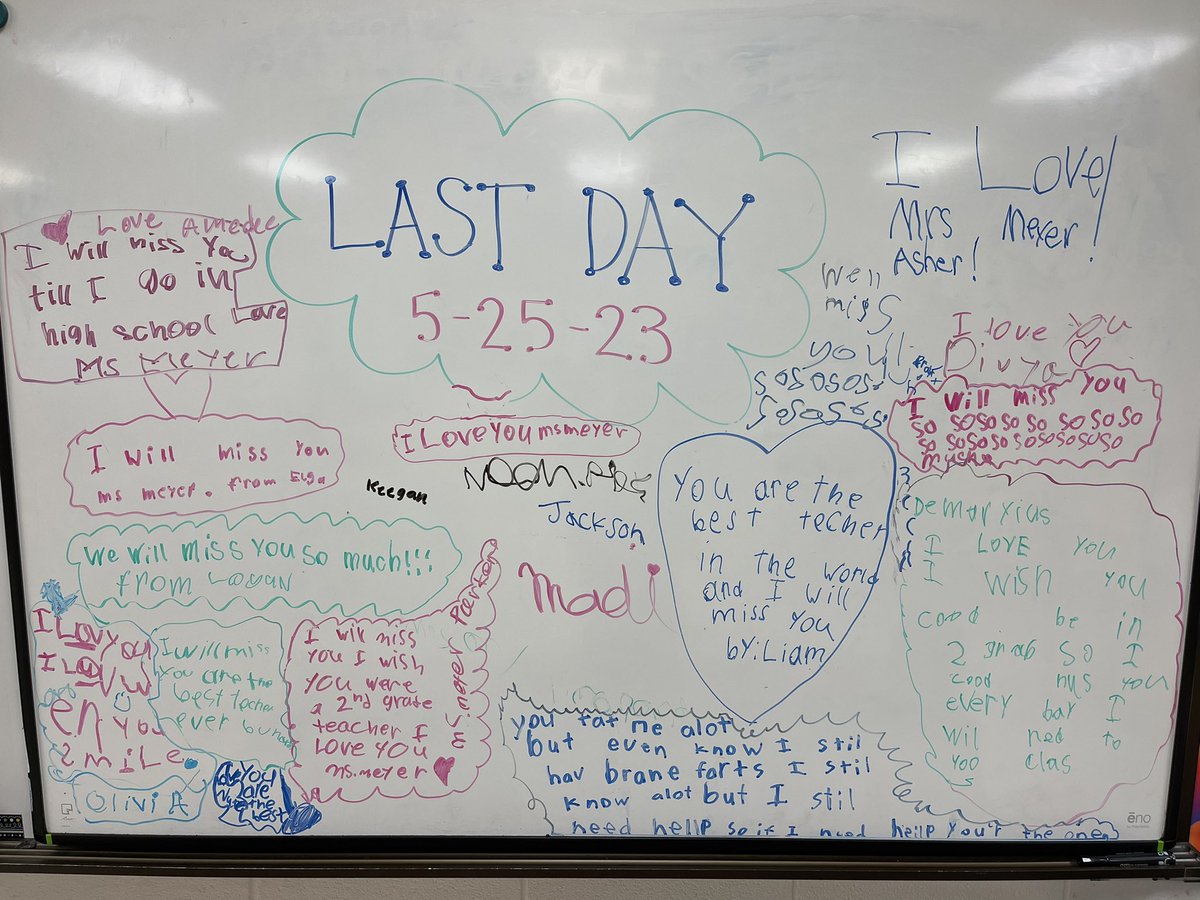 LAST DAY
5-25-23
Love Amedee
I will miss You
till I go in
high school Love
Ms Meyer
I will miss You
ms meyer. from Elsa
I Love you ms meyer
Keegan
Jackson
madi
We will miss you so much!!!
from Logan
I Lov you
I Lov
en you
smile
OliviA
I will miss
you are the
best teacher
ever
Love you
you are
the
best
I will miss
you I wish
you were
a 2nd grade
teacher I
Love you
ms.meyer
ms.meyer Parker
You are the
best techer
in the world
and I will
miss you
by:Liam
you tat me alot
but even know I stil
hav brane farts I stil
know alot but I stil
need hellp so if I need hellp you'r the one
I Love
Mrs Meyer!
Asher!
Well
miss
you!
sosososo
sosososs
I love you
Divya
I will miss you
so sosososo sosososo
so sosososososososo
Demaryius
I LOVE YOU
I WISH YOU
cood be in
2 grab so I
cood hus you
every bay I
wil ned to
yoo clas
ēno